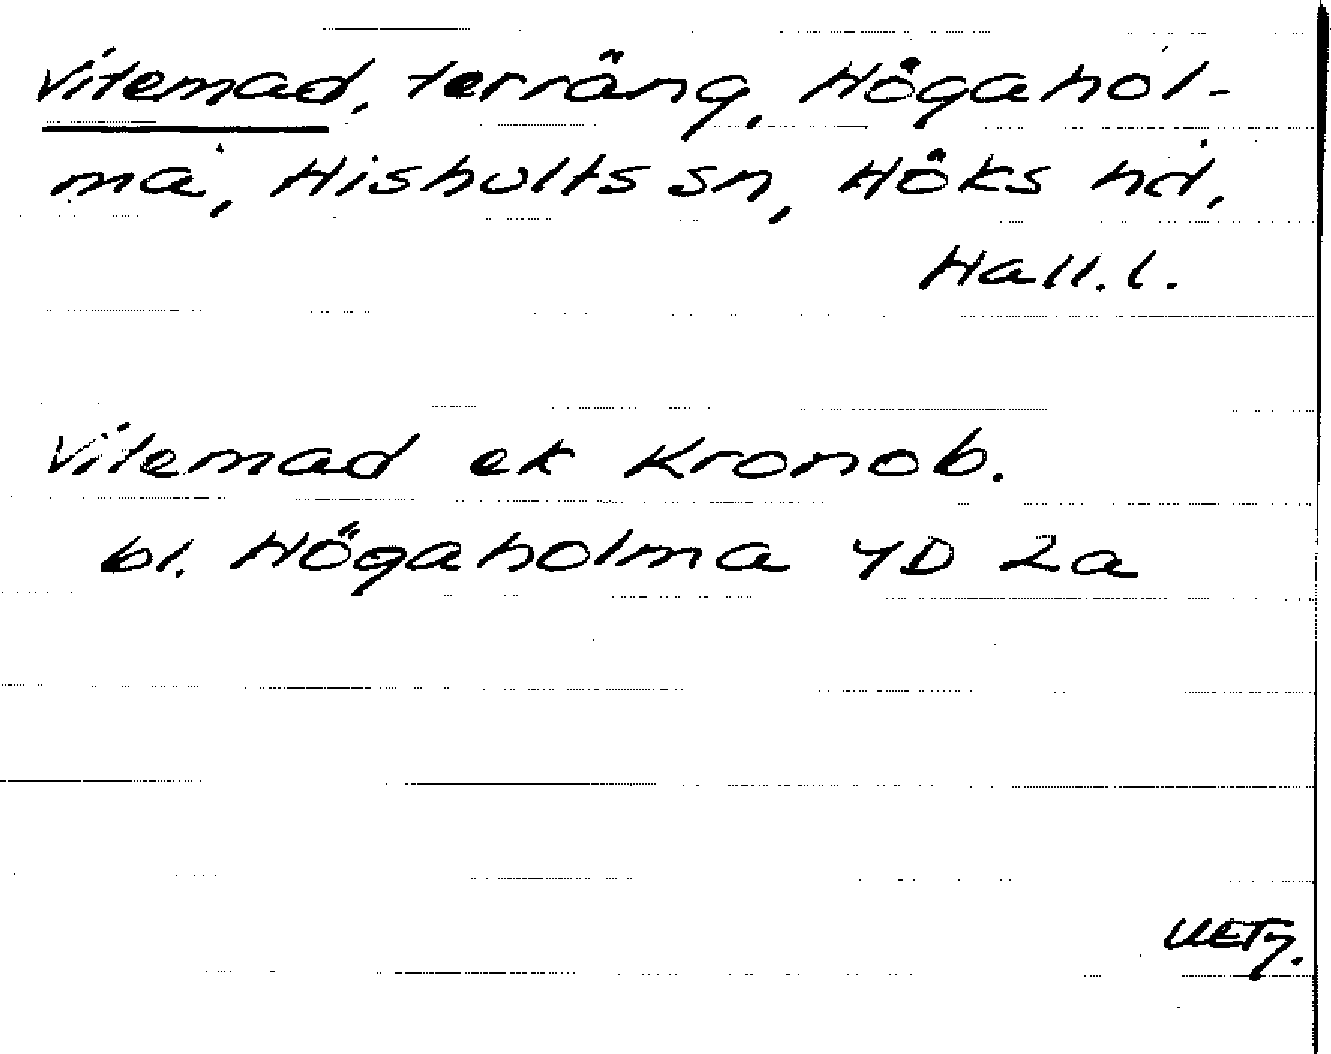 Vitemad, terräng, Högahol-
ma, Hishults sn, Höks hd,
Hall.l.
Vitemad ek Kronob.
bl. Högaholma 4D 2a